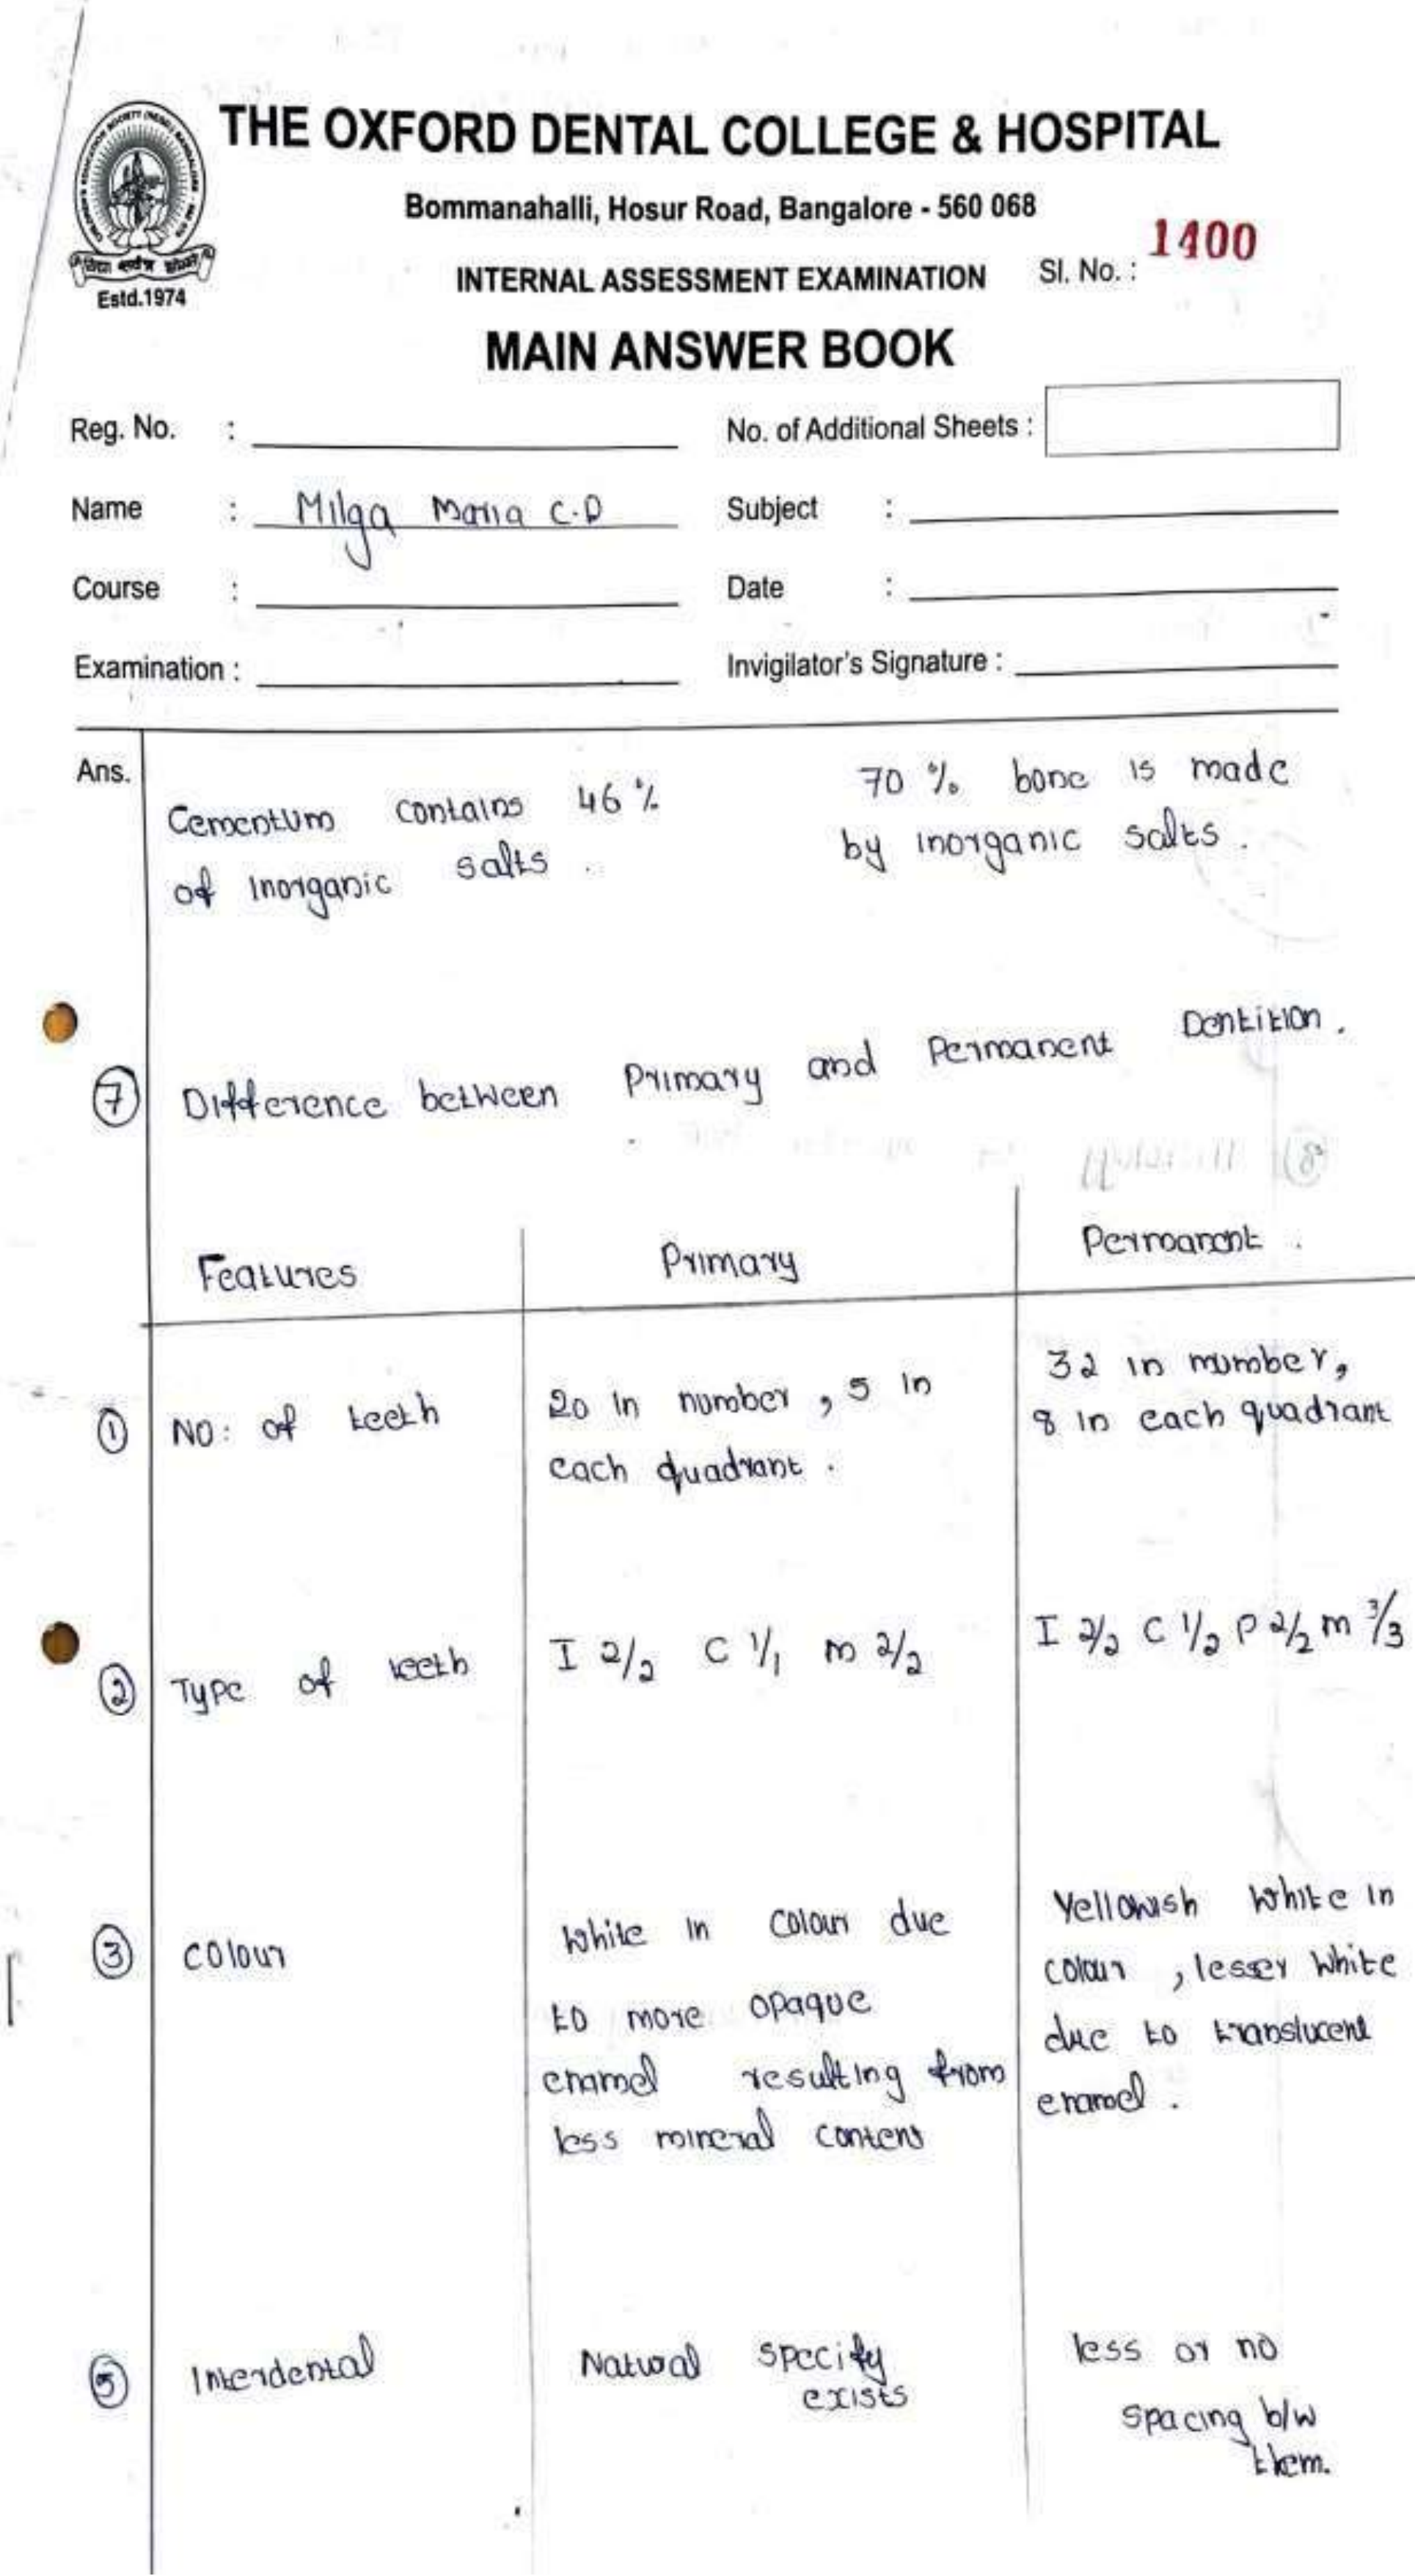 THE OXFORD DENTAL COLLEGE & HOSPITAL
Bommanahalli, Hosur Road, Bangalore - 560 068
INTERNAL ASSESSMENT EXAMINATION
Sl. No. : 1400
MAIN ANSWER BOOK
Estd.1974
Reg. No. :
No. of Additional Sheets :
Name : Milga Maria C.D
Subject :
Course :
Date :
Examination :
Invigilator's Signature :
Ans.
Cementum contains 46 %
of inorganic salts .
70 % bone is made
by inorganic salts .
7 Difference between Primary and Permanent Dentition .
Features
Primary
Permanent .
1 NO: of teeth
20 in number , 5 in
each quadrant .
32 in number,
8 in each quadrant
2 Type of teeth
I 2/2 C 1/1 m 2/2
I 2/2 C 1/2 P 2/2 m 3/3
3 colour
White in colour due
to more opaque
enamel resulting from
less mineral content
Yellowish white in
colour , lesser white
due to translucent
enamel .
5 Interdental
Natural specify
exists
less or no
spacing b/w
them.